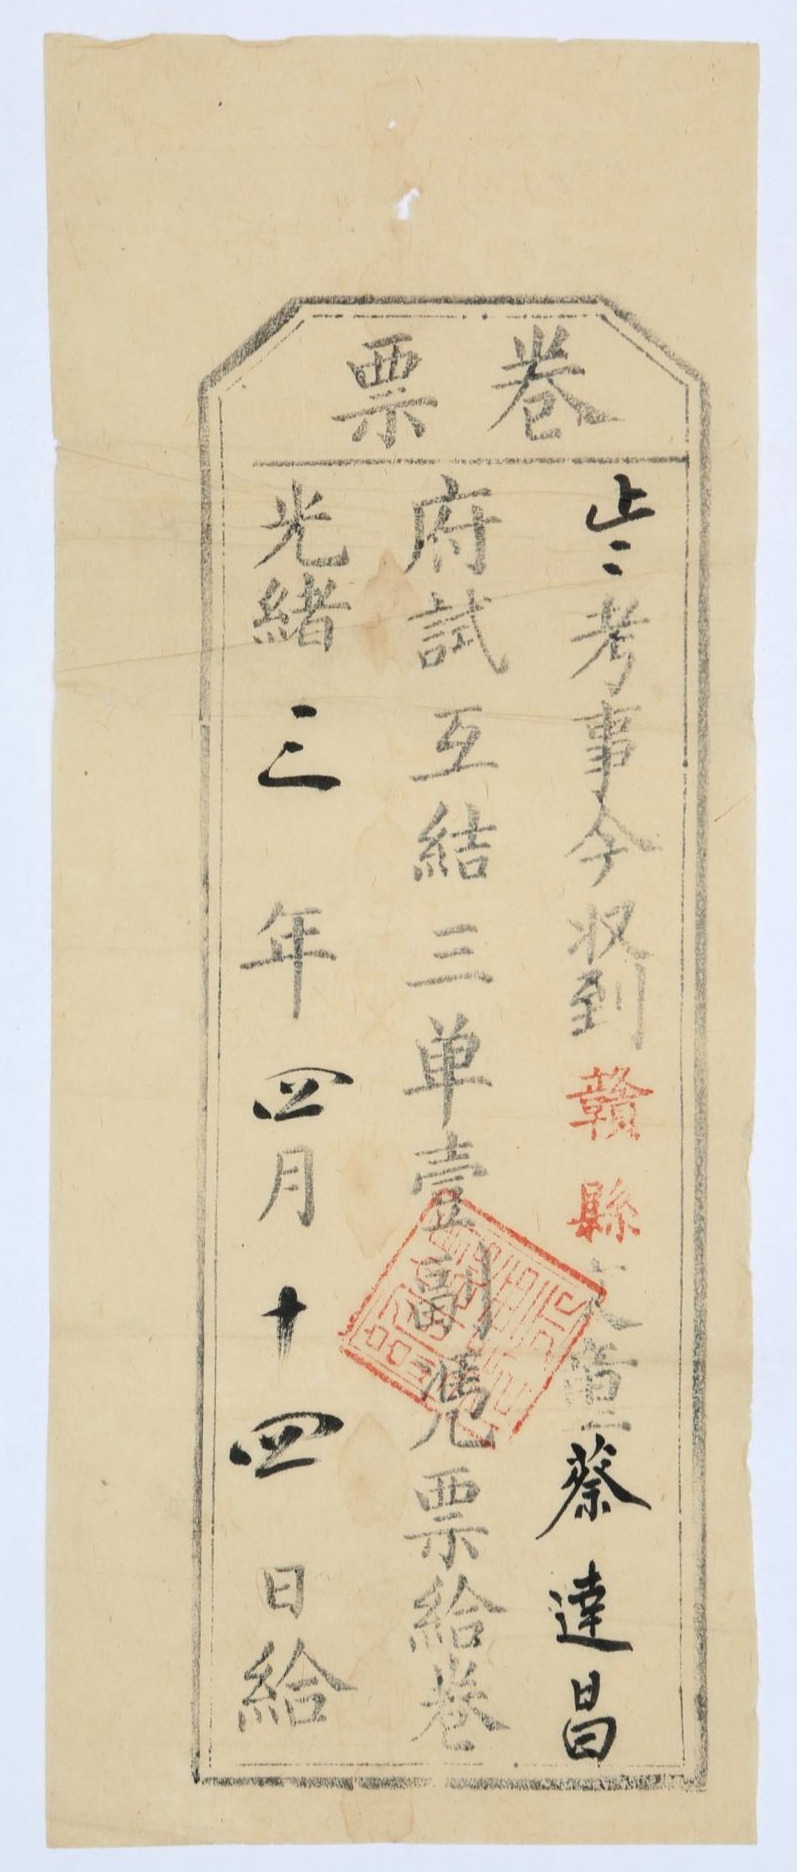 卷票
考事今收到贛縣文童蔡達昌
府試互結三单壹副凭票給卷
光緒三年四月十四日給